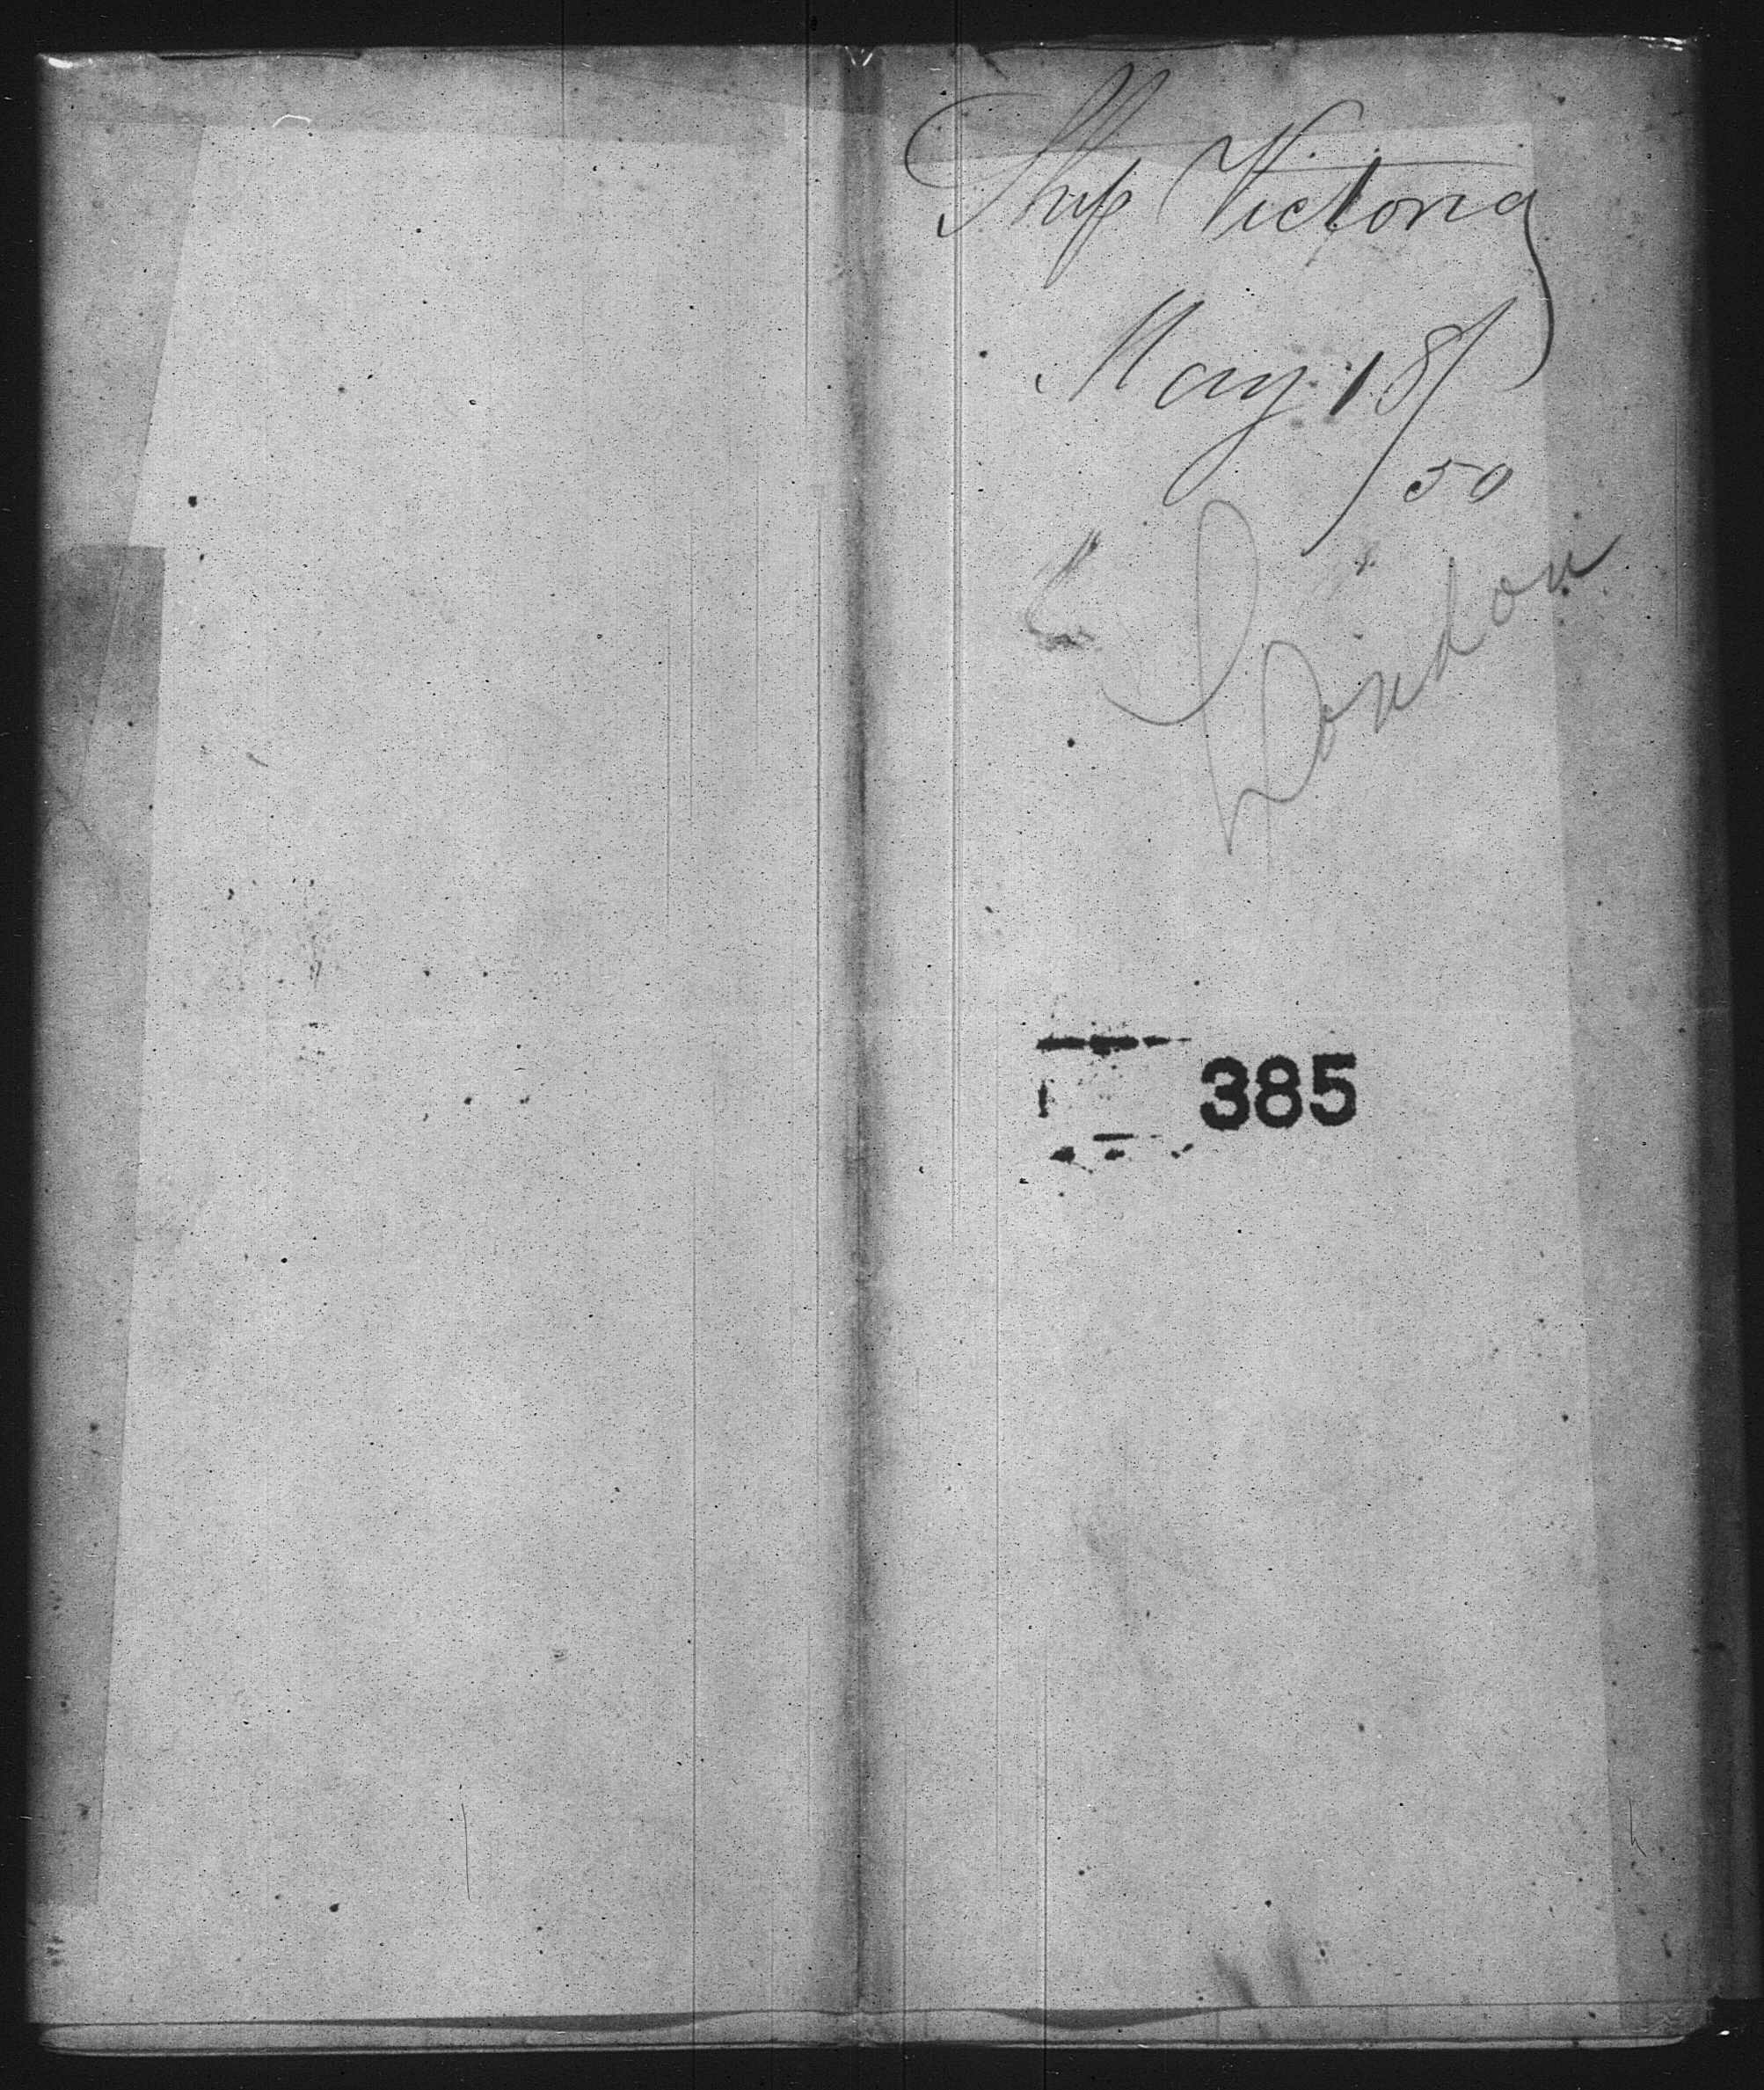 Ship Victoria
May 18/
50
London
385